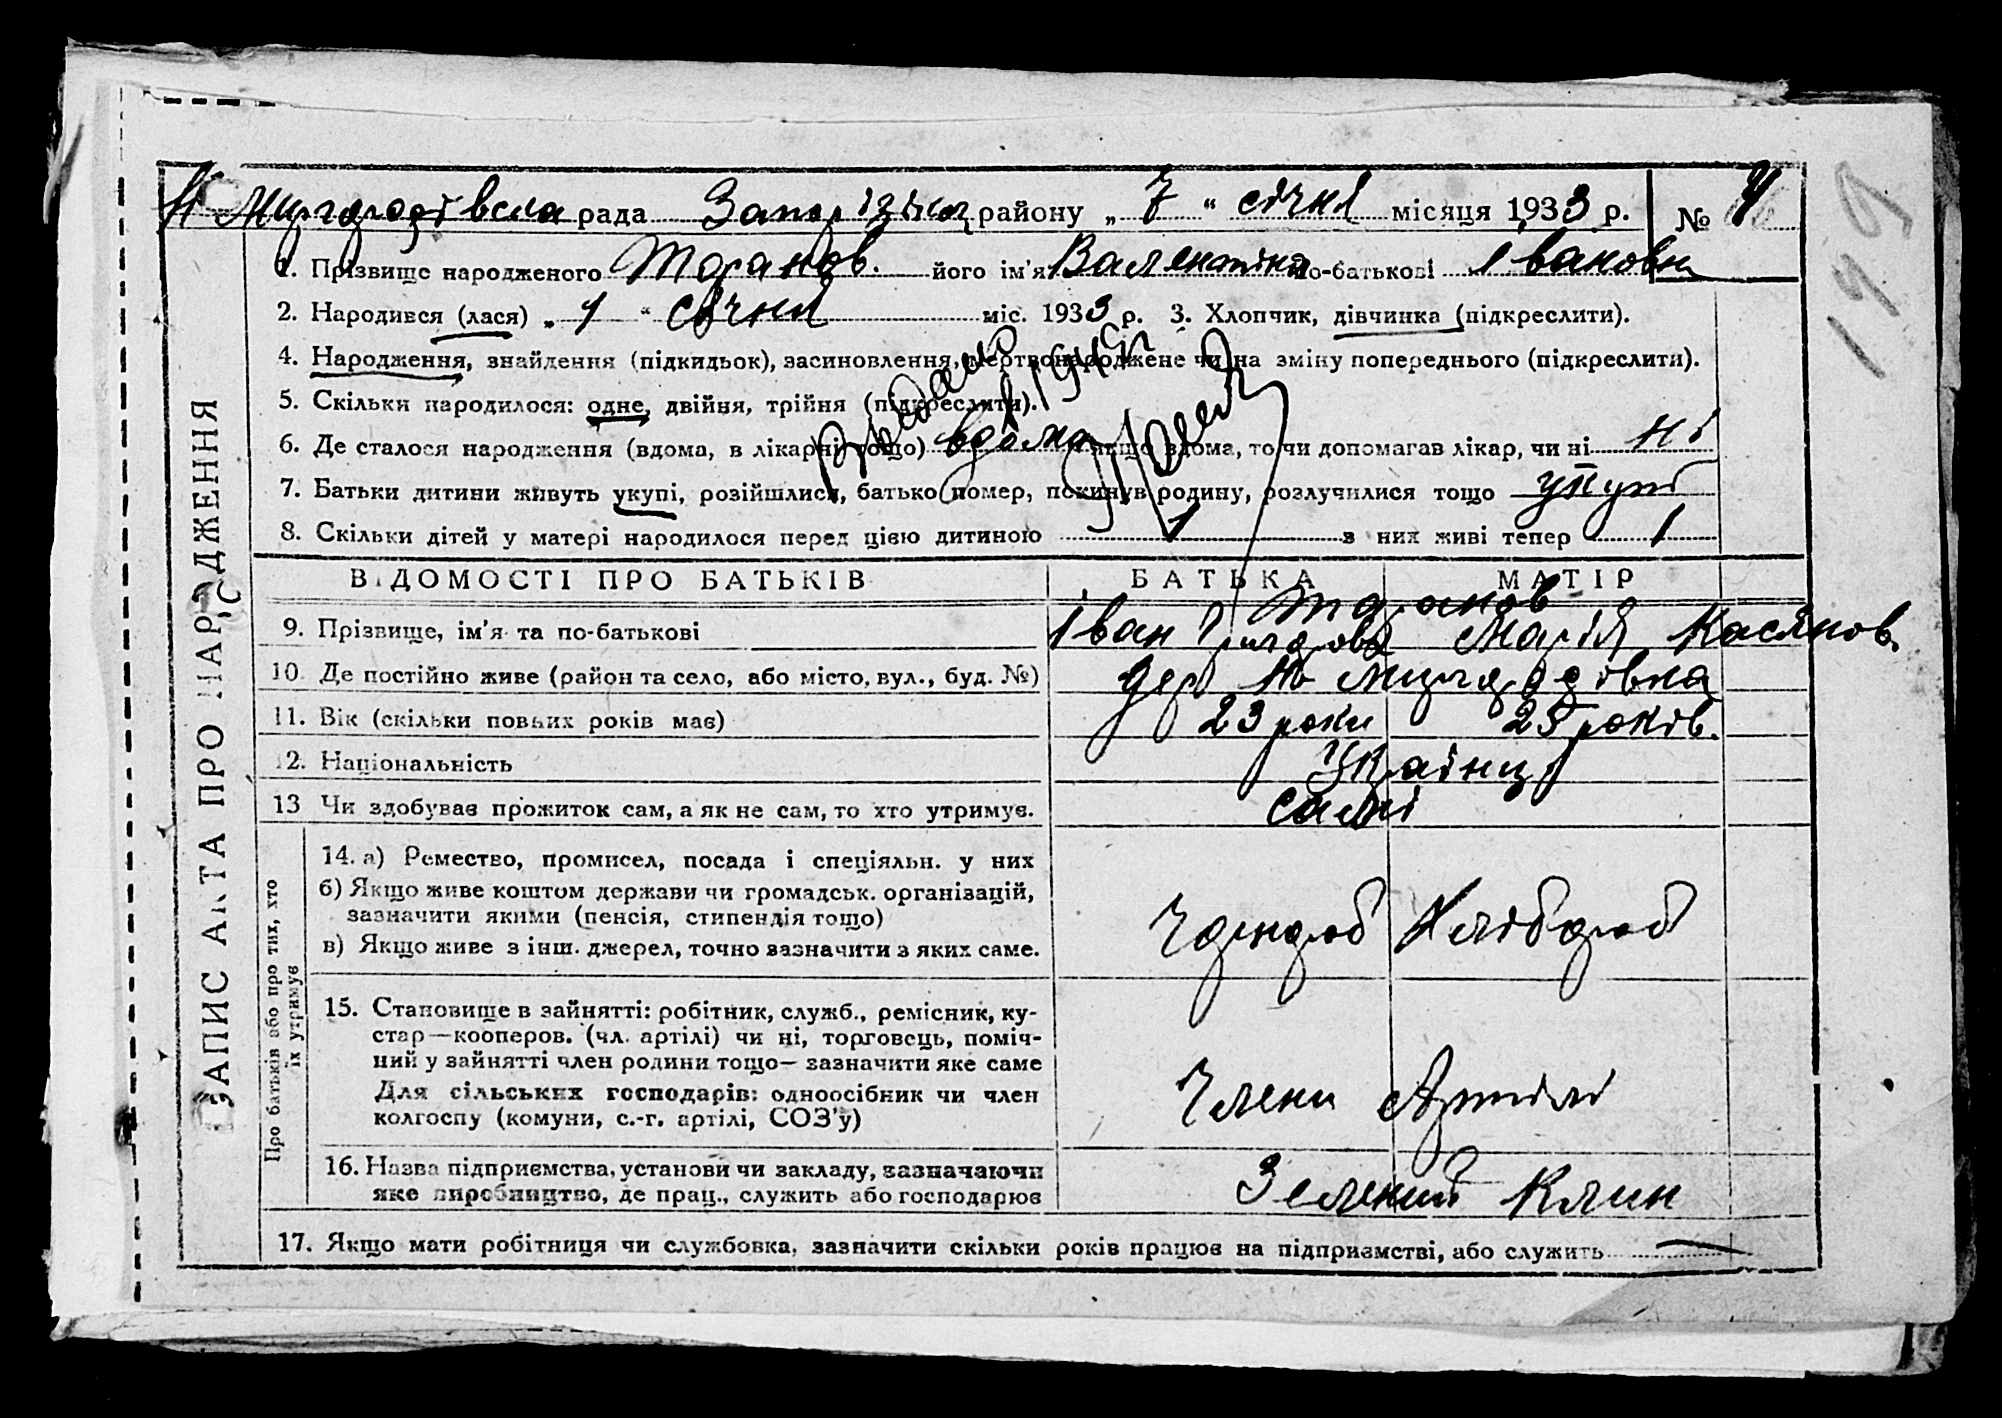 Миргородівська рада Запорізьког району „ 7 “ січня місяця 1933 р. № 4
199
1. Прізвище народженого Таранов. його ім'я Валентина по-батькові Івановн
2. Народився (лася) „ 4 “ січня міс. 1933 р. 3. Хлопчик, дівчинка (підкреслити).
4. Народження, знайдення (підкидьок), засиновлення, мертвонароджене чи на зміну попереднього (підкреслити).
5. Скільки народилося: одне, двійня, трійня (підкреслити).
6. Де сталося народження (вдома, в лікарні тощо) вдома якщо вдома, то чи допомагав лікар, чи ні ні
7. Батьки дитини живуть укупі, розійшлися, батько помер, покинув родину, розлучилися тощо укупі
8. Скільки дітей у матері народилося перед цією дитиною 1 з них живі тепер 1
ЗАПИС АКТА ПРО НАРОДЖЕННЯ
ВІДОМОСТІ ПРО БАТЬКІВ БАТЬКА МАТІР
Таранов
9. Прізвище, ім'я та по-батькові Іван Марія Касянов.
10. Де постійно живе (район та село, або місто, вул., буд. №)
11. Вік (скільки повних років має) 23 роки 25 років.
12. Національність Українці
13 Чи здобував прожиток сам, а як не сам, то хто утримує. самі
Про батьків або про тих, хто їх утримує
14. а) Ремество, промисел, посада і спеціяльн. у них
б) Якщо живе коштом держави чи громадськ. організацій,
зазначити якими (пенсія, стипендія тощо)
Хлібороб
в) Якщо живе з інш. джерел, точно зазначити з яких саме.
15. Становище в зайнятті: робітник, служб., ремісник, ку-
стар—кооперов. (чл. артілі) чи ні, торговець, поміч-
ний у зайнятті член родини тощо— зазначити яке саме
Для сільських господарів: одноосібник чи член
колгоспу (комуни, с.-г. артілі, СОЗ'у)
Члени Артілі
16. Назва підприємства, установи чи закладу, зазначаючи
яке виробництво, де прац., служить або господарює
Зелений Клин
17. Якщо мати робітниця чи службовка, зазначити скільки років працює на підприємстві, або служить —